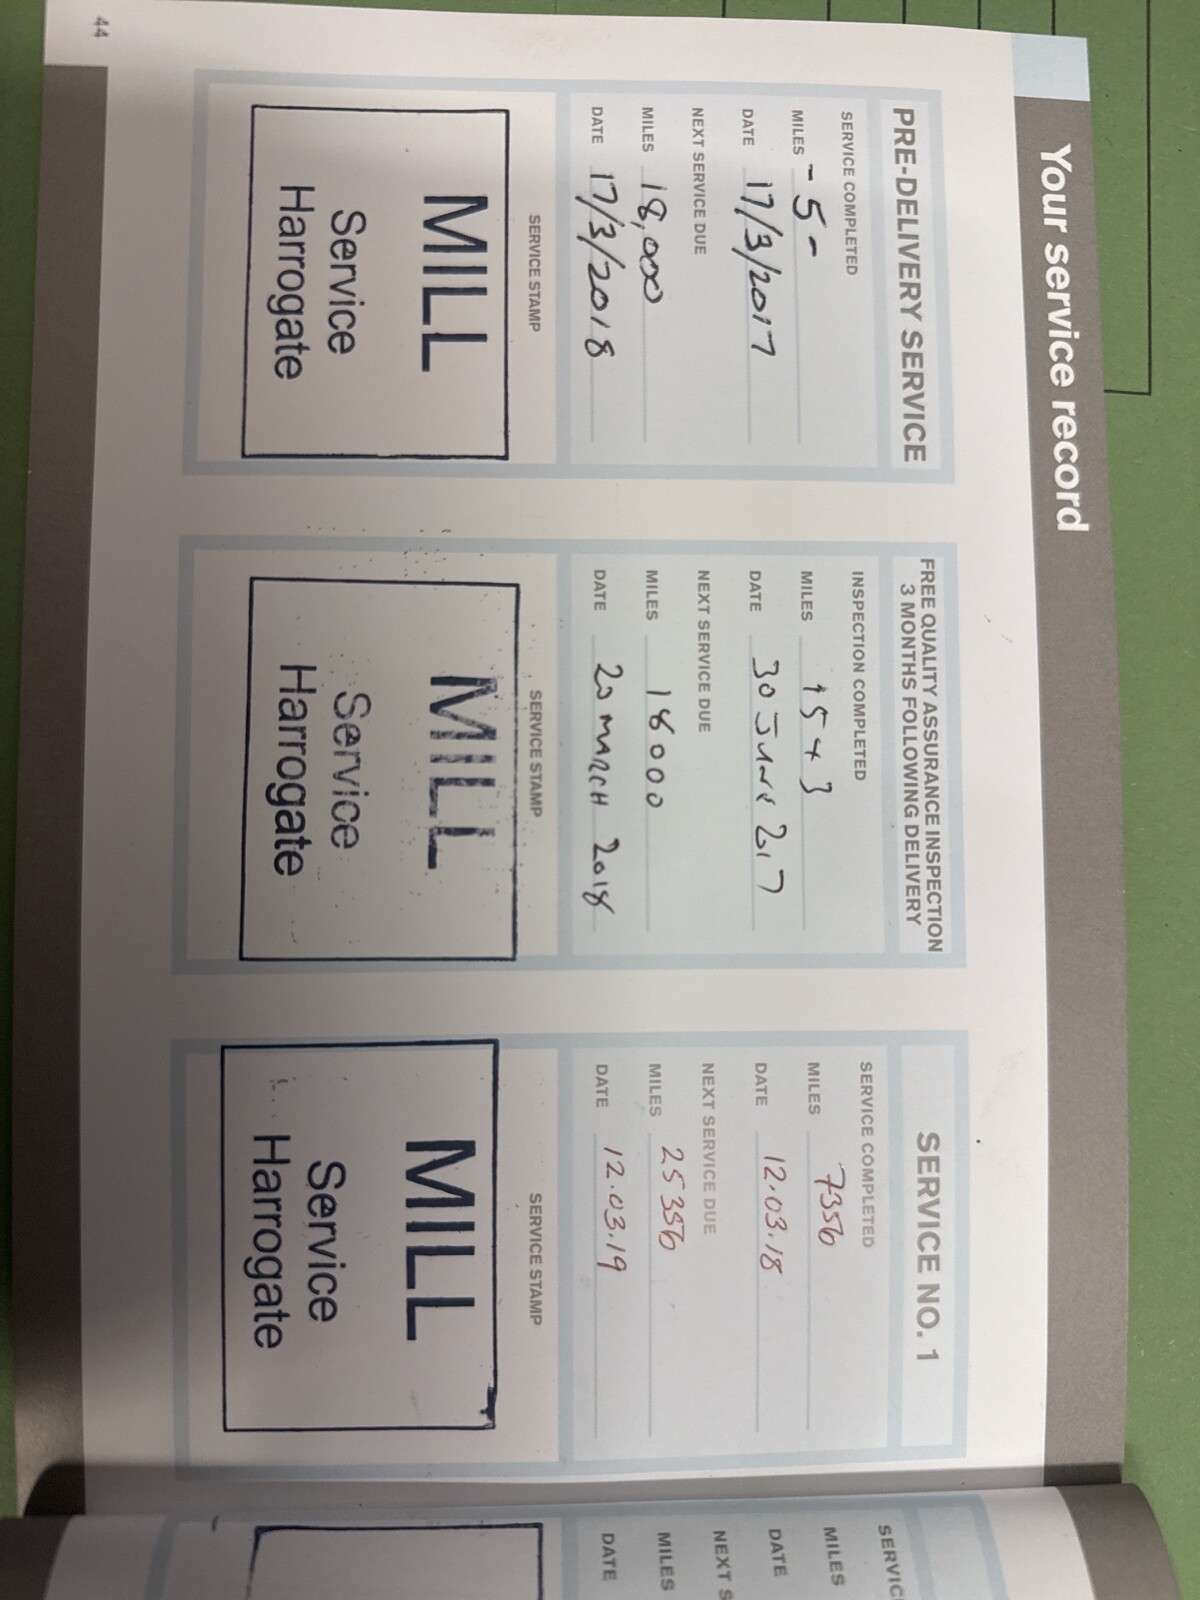 Your service record
PRE-DELIVERY SERVICE
SERVICE COMPLETED
MILES -5-
DATE 17/3/2017
NEXT SERVICE DUE
MILES 18,000
DATE 17/3/2018
SERVICE STAMP
MILL
Service
Harrogate
FREE QUALITY ASSURANCE INSPECTION
3 MONTHS FOLLOWING DELIVERY
INSPECTION COMPLETED
MILES
DATE 30 JUNE 2017
NEXT SERVICE DUE
MILES 18000
DATE 20 MARCH 2018
SERVICE STAMP
MILL
Service
Harrogate
SERVICE NO. 1
SERVICE COMPLETED
MILES 7356
DATE 12.03.18
NEXT SERVICE DUE
MILES 25356
DATE 12.03.19
SERVICE STAMP
MILL
Service
Harrogate
44
MILES
DATE
MILES
DATE